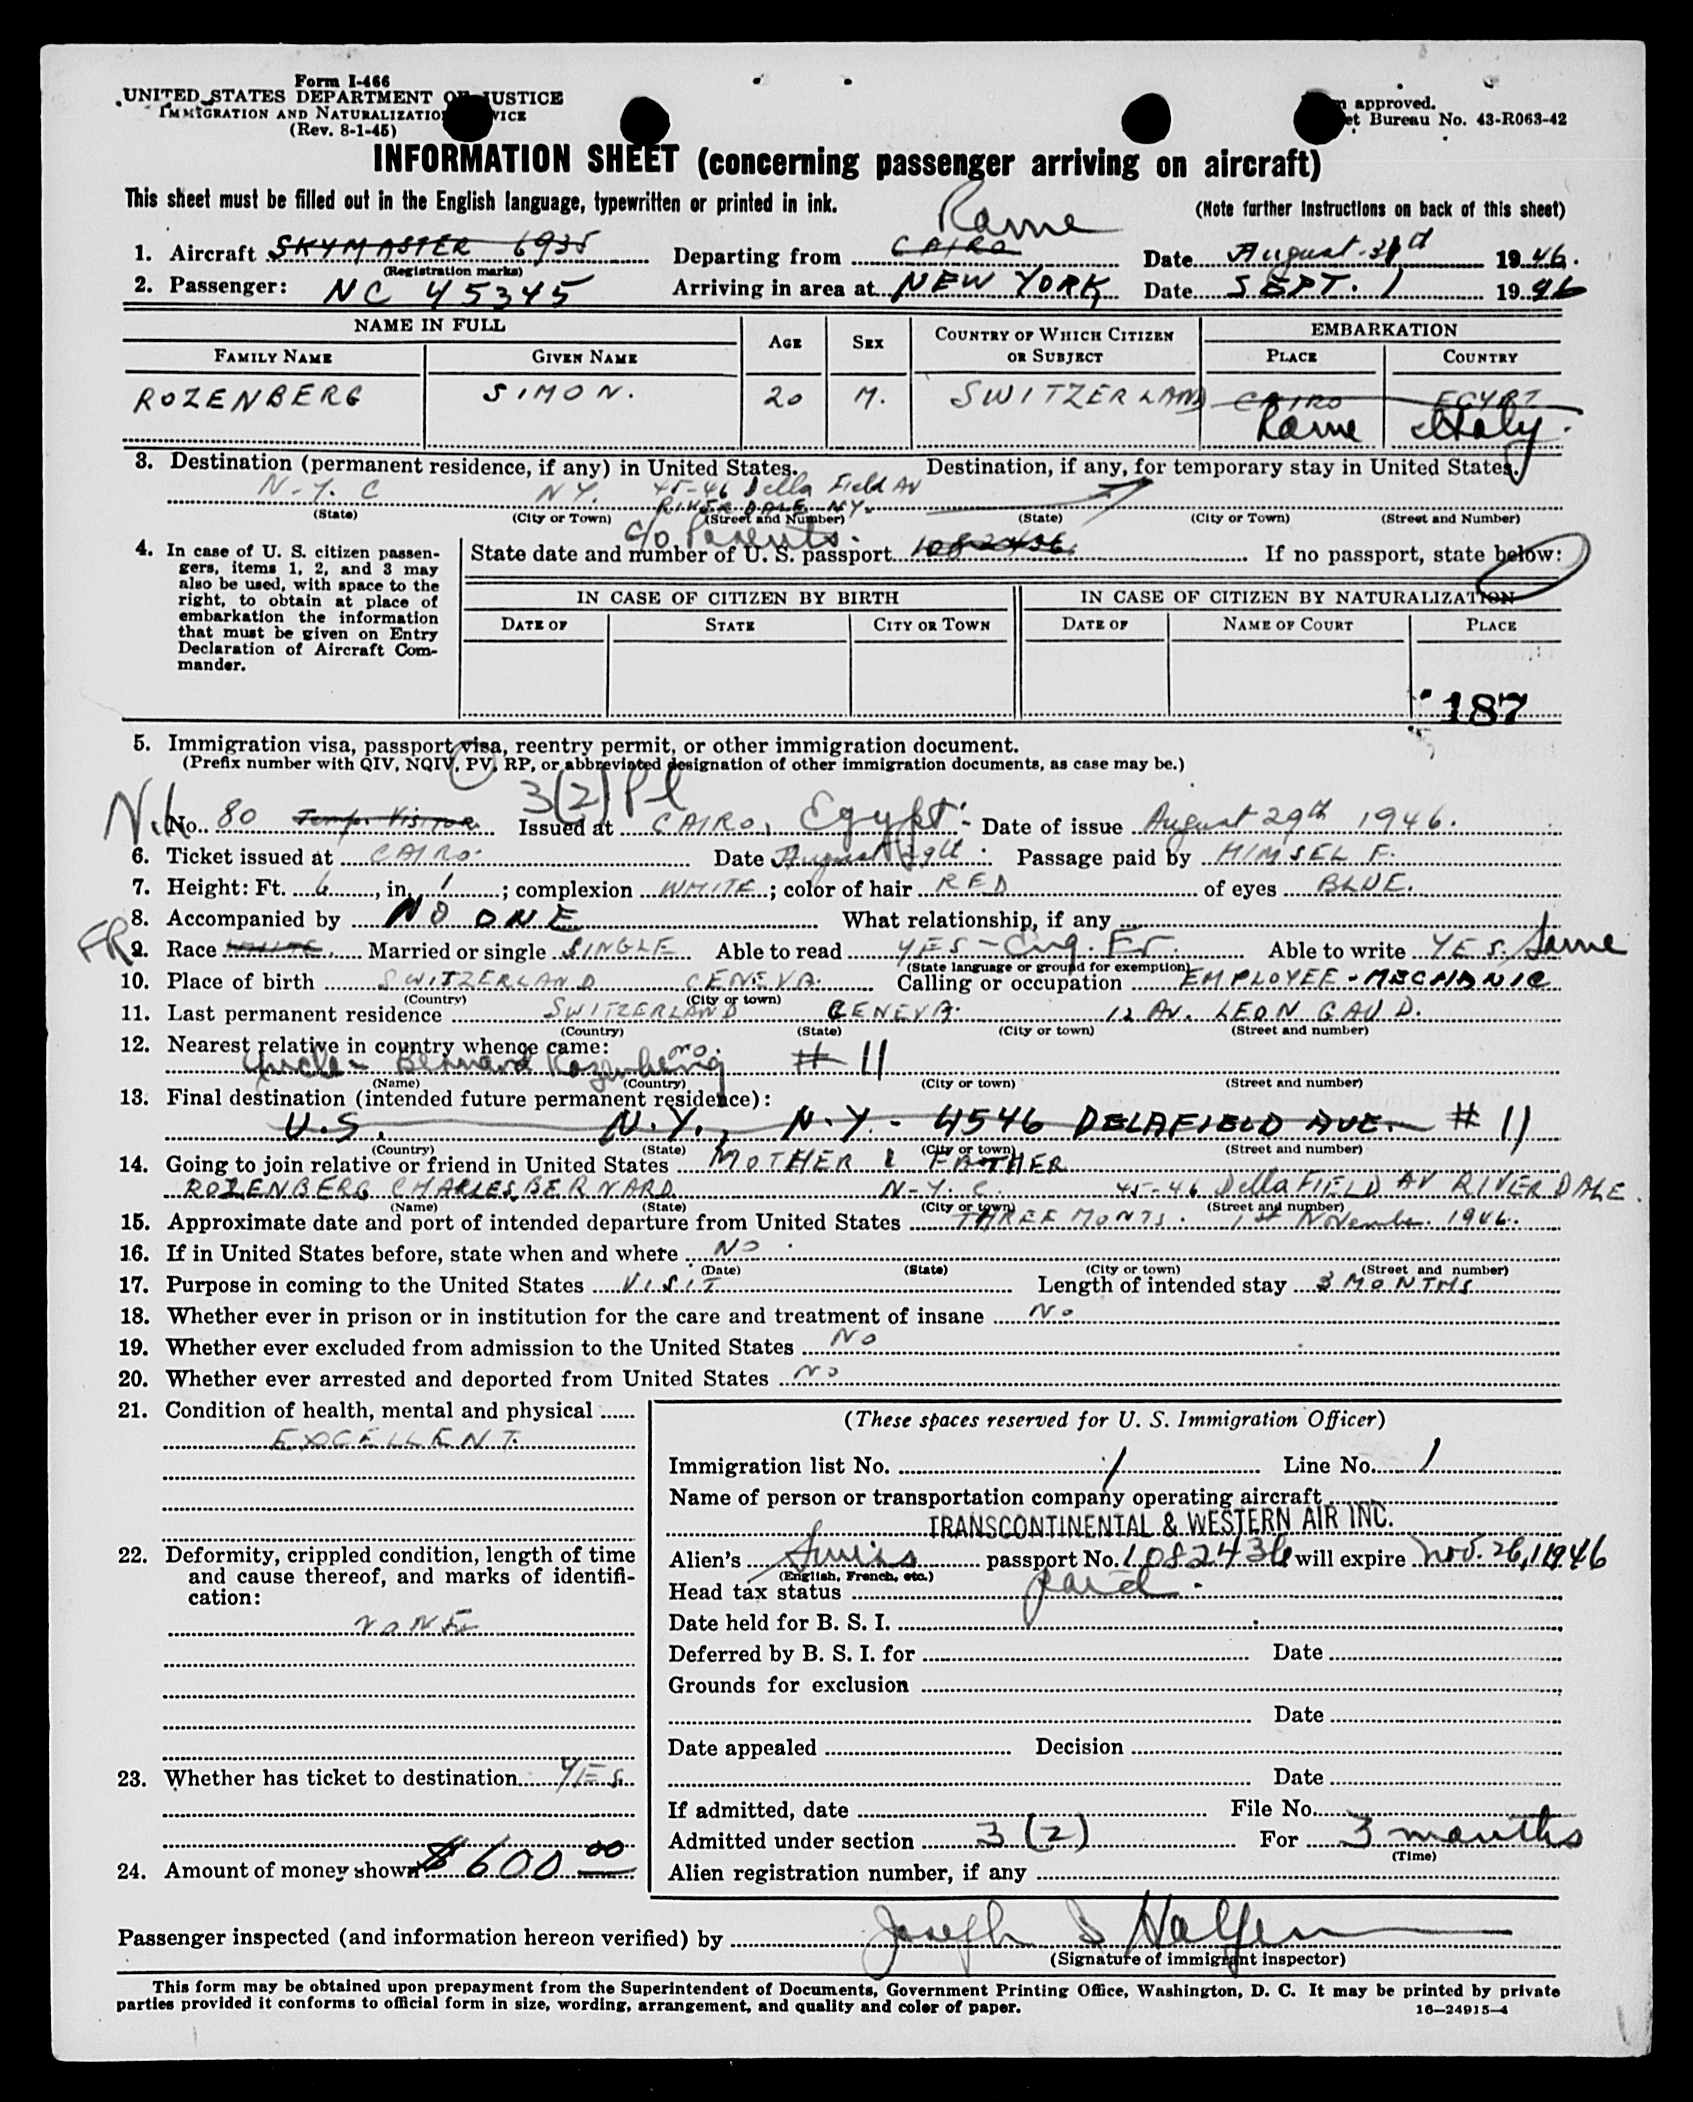 Form I-466
UNITED STATES DEPARTMENT OF JUSTICE
IMMIGRATION AND NATURALIZATION SERVICE
(Rev. 8-1-45)
approved.
et Bureau No. 43-R063-42
INFORMATION SHEET (concerning passenger arriving on aircraft)
This sheet must be filled out in the English language, typewritten or printed in ink.
(Note further instructions on back of this sheet)
Rome
1. Aircraft SKYMASTER 6935 Departing from CAIRO Date August 31d 1946.
(Registration marks)
2. Passenger: NC 45345 Arriving in area at NEW YORK Date SEPT. 1 1946
NAME IN FULL AGE SEX COUNTRY OF WHICH CITIZEN OR SUBJECT EMBARKATION
FAMILY NAME GIVEN NAME PLACE COUNTRY
ROZENBERG SIMON. 20 M. SWITZERLAND CAIRO EGYPT
Rome Italy.
3. Destination (permanent residence, if any) in United States. Destination, if any, for temporary stay in United States.
N-Y. C NY. 45-46 Della Field Av
RIVER DALE NY.
(State) (City or Town) (Street and Number) (State) (City or Town) (Street and Number)
c/o Parents.
4. In case of U. S. citizen passengers, items 1, 2, and 3 may also be used, with space to the right, to obtain at place of embarkation the information that must be given on Entry Declaration of Aircraft Commander.
State date and number of U. S. passport 1082436 If no passport, state below:
IN CASE OF CITIZEN BY BIRTH IN CASE OF CITIZEN BY NATURALIZATION
DATE OF STATE CITY OR TOWN DATE OF NAME OF COURT PLACE
187
5. Immigration visa, passport visa, reentry permit, or other immigration document.
(Prefix number with QIV, NQIV, PV, RP, or abbreviated designation of other immigration documents, as case may be.)
3(2) Pl
No. 80 Temp. Visitor Issued at CAIRO, Egypt. Date of issue August 29th 1946.
6. Ticket issued at CAIRO. Date August 29th. Passage paid by HIMSELF.
7. Height: Ft. 6, in. 1; complexion WHITE; color of hair RED of eyes BLUE.
8. Accompanied by NO ONE What relationship, if any
FR
9. Race WHITE. Married or single SINGLE Able to read YES - Eng. Fr. Able to write YES. Same
(State language or ground for exemption)
10. Place of birth SWITZERLAND GENEVA. Calling or occupation EMPLOYEE - MECHANIC
(Country) (City or town)
11. Last permanent residence SWITZERLAND GENEVA. 12 AV. LEON GAUD.
(Country) (State) (City or town) (Street and number)
12. Nearest relative in country whence came: no.
Uncle - Bernard Rozenberg # 11
(Name) (Country) (City or town) (Street and number)
13. Final destination (intended future permanent residence):
U.S. N.Y., N.Y. - 4546 DELAFIELD AVE. # 11
(Country) (State) (City or town) (Street and number)
14. Going to join relative or friend in United States MOTHER & FATHER
ROZENBERG CHARLES BERNARD N-Y. C. 45-46 Della FIELD AV RIVER DALE.
(Name) (State) (City or town) (Street and number)
15. Approximate date and port of intended departure from United States THREE MONTS. 1st November. 1946.
16. If in United States before, state when and where NO.
(Date) (State) (City or town) (Street and number)
17. Purpose in coming to the United States VISIT Length of intended stay 3 MONTHS
18. Whether ever in prison or in institution for the care and treatment of insane NO
19. Whether ever excluded from admission to the United States NO
20. Whether ever arrested and deported from United States NO
21. Condition of health, mental and physical
EXCELLENT.
22. Deformity, crippled condition, length of time and cause thereof, and marks of identification:
NONE
23. Whether has ticket to destination YES.
24. Amount of money shown $600 00
(These spaces reserved for U. S. Immigration Officer)
Immigration list No. 1 Line No. 1
Name of person or transportation company operating aircraft
TRANSCONTINENTAL & WESTERN AIR INC.
Alien's Swiss passport No. 1082436 will expire Nov. 26, 1946
(English, French, etc.)
Head tax status paid.
Date held for B. S. I.
Deferred by B. S. I. for Date
Grounds for exclusion
Date
Date appealed Decision
Date
If admitted, date File No.
Admitted under section 3(2) For 3 months
(Time)
Alien registration number, if any
Passenger inspected (and information hereon verified) by Joseph S Halfen
(Signature of immigrant inspector)
This form may be obtained upon prepayment from the Superintendent of Documents, Government Printing Office, Washington, D. C. It may be printed by private
parties provided it conforms to official form in size, wording, arrangement, and quality and color of paper.
16—24915-4